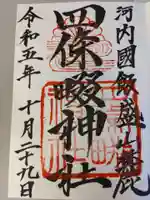 河内國飯盛山麓鹿
四條畷神社
令和五年十月二十九日